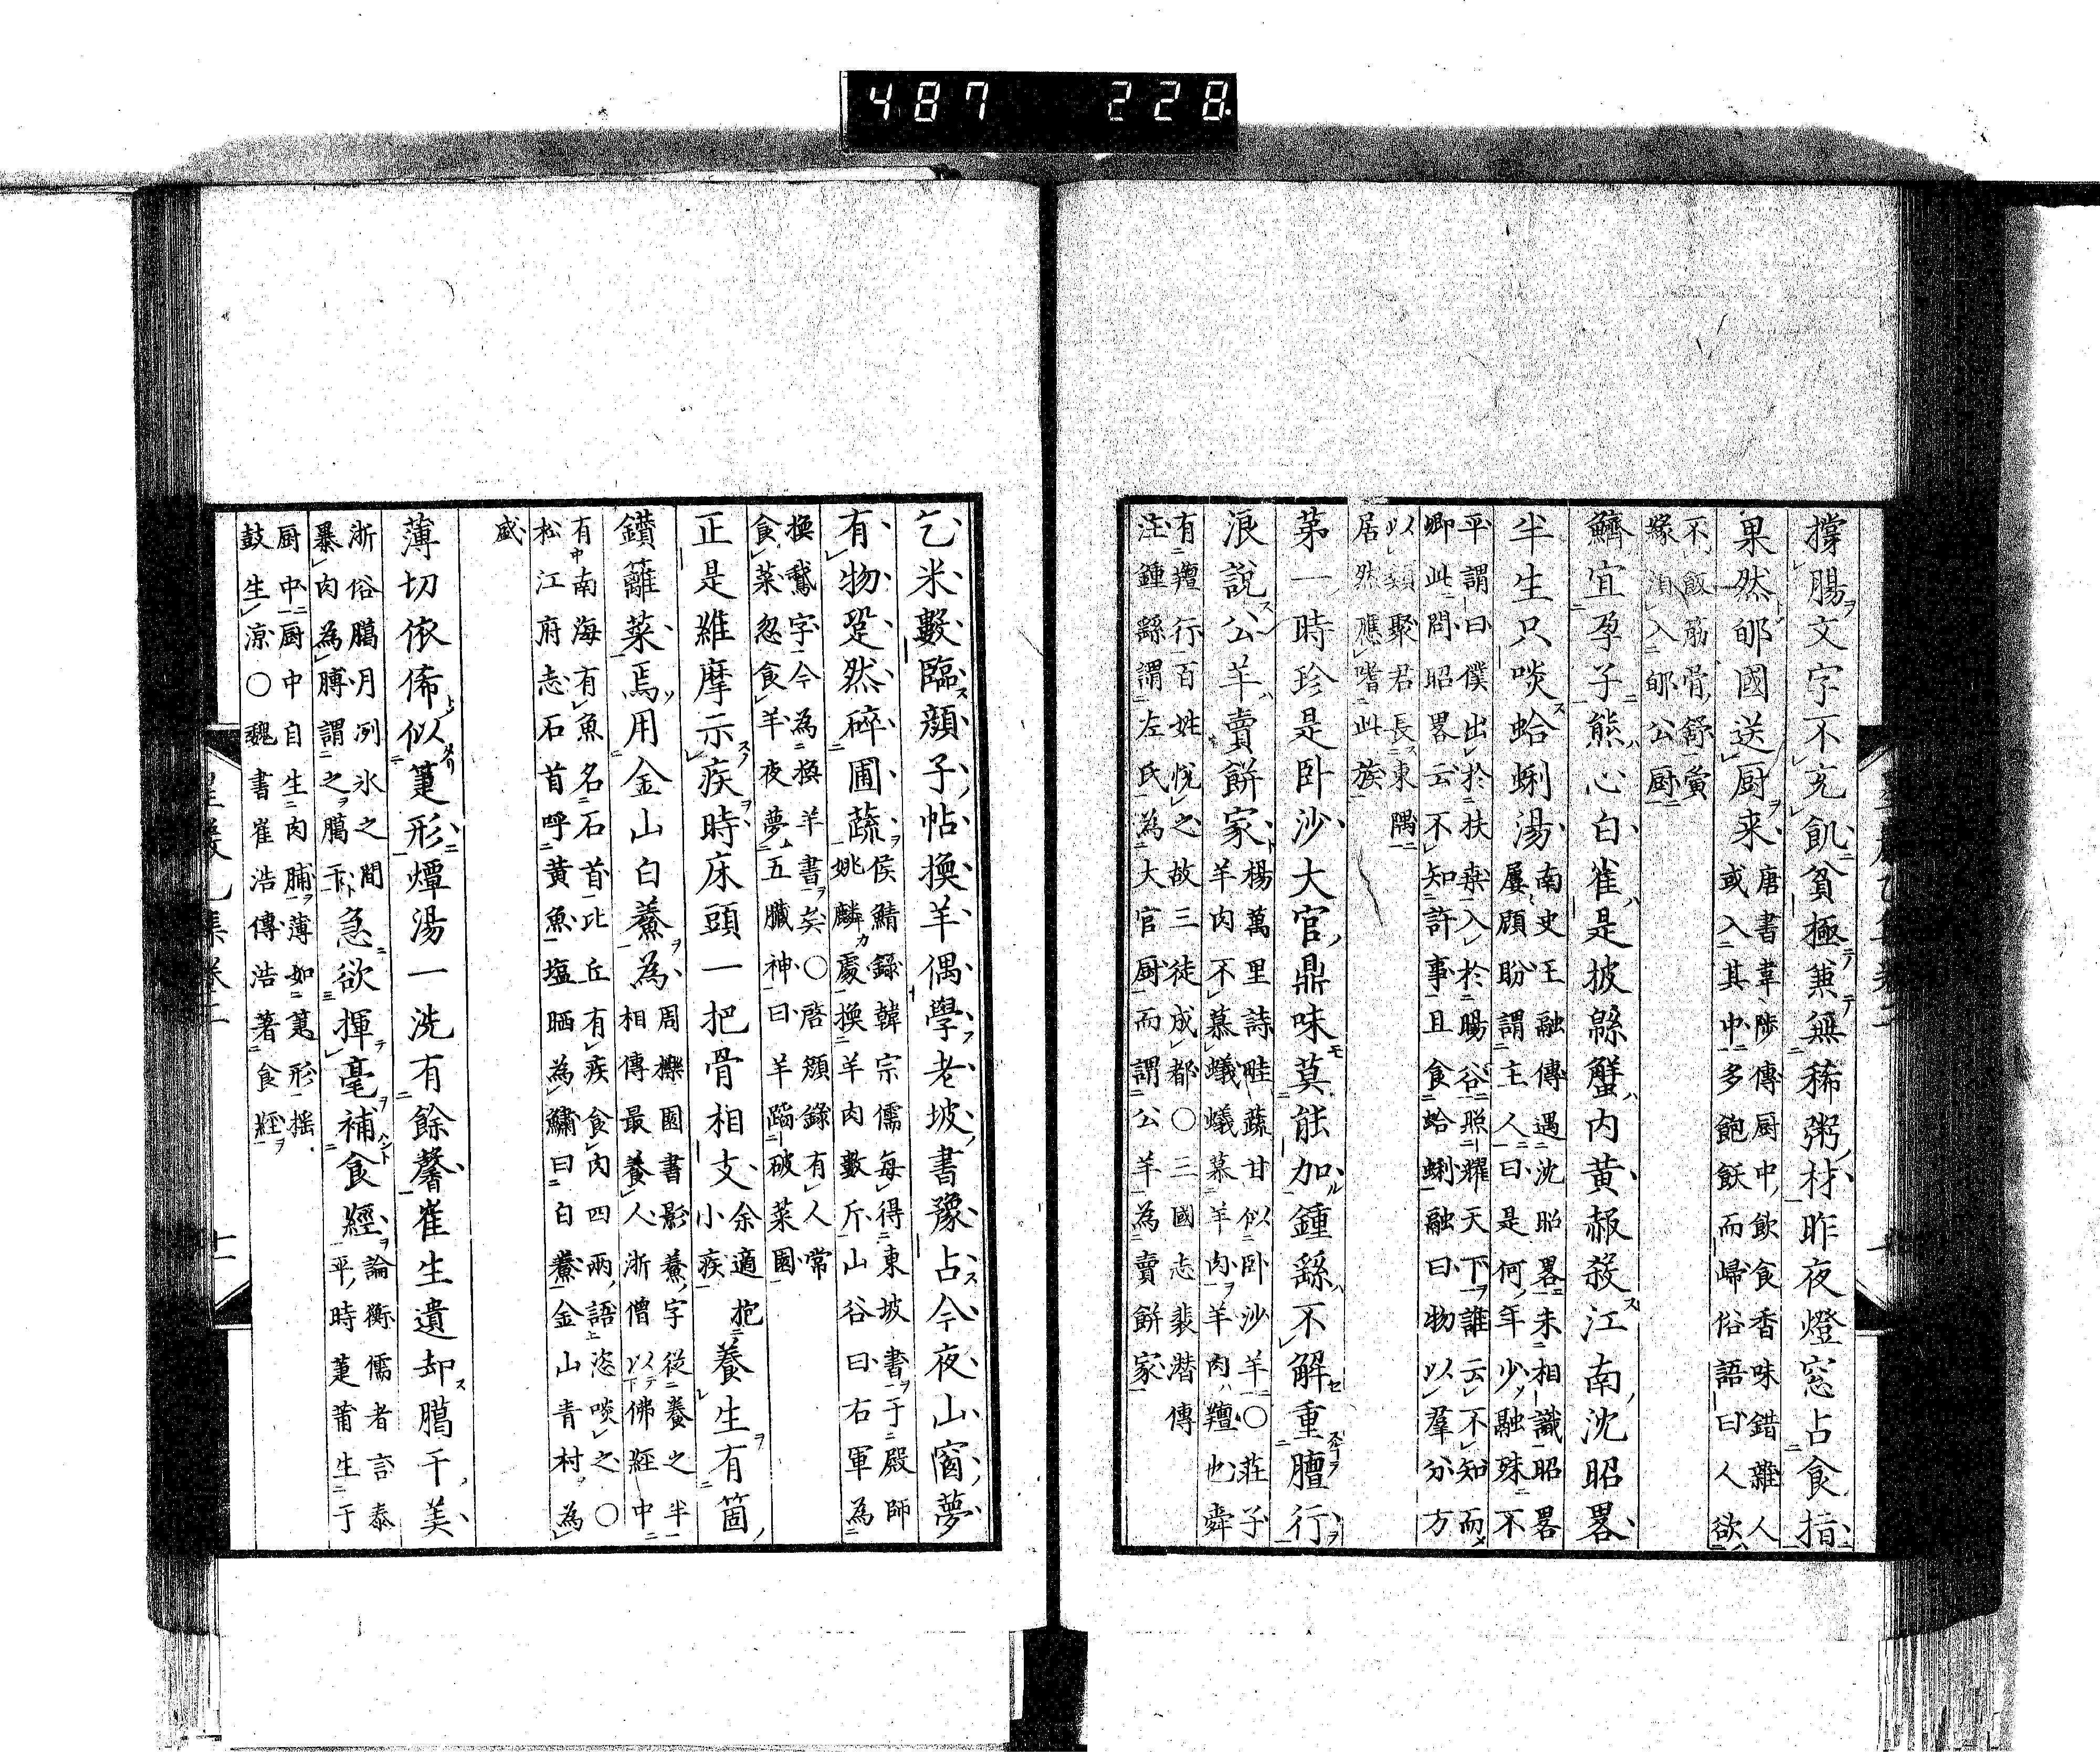 487 228
撐腸文字不充飢貧極兼無稀粥材昨夜燈窓占食指
果然郇國送厨来
唐書韋陟傳厨中飲食香味錯雜人
或入其中多飽飫而歸俗語曰人欲
不飯筋骨舒夤
緣須入郇公厨
鱭宜孕子熊心白雀是披緜蟹内黄赧殺江南沈昭畧
半生只啖蛤蜊湯
南史王融傳遇沈昭畧未相識昭畧
屢顧盼謂主人曰是何年少融殊不
平謂曰僕出於扶桒入於暘谷照耀天下誰云不知而
卿此問昭畧云不知許事且食蛤蜊融曰物以羣分方
以類聚君長東隅
居然應嗜此族
苐一時珍是卧沙大官鼎味莫能加鍾繇不解重膻行
浪說公羊賣餅家
楊萬里詩畦蔬甘似卧沙羊〇莊子
羊肉不慕蟻蟻慕羊肉羊肉羶也舜
有羶行百姓悅之故三徒成都〇三國志裴潜傳
注鍾繇謂左氏為大官厨而謂公羊為賣餅家
乞米數臨顔子帖換羊偶學老坡書豫占今夜山窗夢
有物跫然碎圃蔬
侯鯖錄韓宗儒每得東坡書于殿師
姚麟處換羊肉數斤山谷曰右軍為
換鵞字今為換羊書矣〇啓顏錄有人常
食菜忽食羊夜夢五臓神曰羊蹈破菜園
正是維摩示疾時床頭一把骨相支
余適抱
小疾
養生有箇
鑽籬菜焉用金山白鯗為
周櫟園書影鯗字從養之半
相傳最養人浙僧以佛經中
有南海有魚名石首比丘有疾食肉四兩語恣啖之〇
松江府志石首呼黄魚塩晒為鱐曰白鯗金山青村為
盛
薄切依俙似箑形燂湯一洗有餘馨崔生遺却臈干美
浙俗臈月冽氷之間
暴肉為膊謂之臈干
急欲揮毫補食經
論衡儒者言泰
平時箑莆生于
厨中厨中自生肉脯薄如箑形揺
鼓生凉〇魏書崔浩傳浩著食經
十一